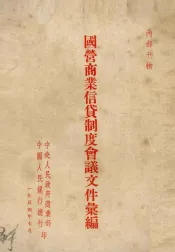 內部刊物
國營商業信貸制度會議文件彙編
中央人民政府商業部
中國人民銀行總行
一九五四年七月